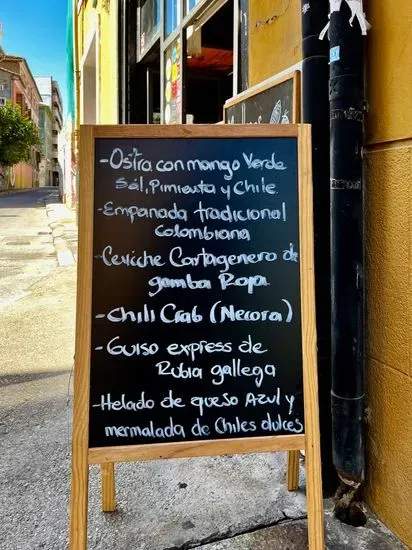 -Ostra con mango Verde
Sal, Pimienta y Chile.
-Empanada tradicional
Colombiana
-Ceviche Cartagenero de
gamba Roja
-Chili Crab (Necora)
-Guiso express de
Rubia gallega
-Helado de queso Azul y
mermalada de Chiles dulces